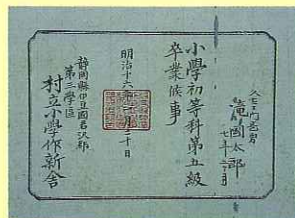 瀧國太郎
七年六月
小學初等科第五級
卒業候事
明治十六年 月三十日
靜岡縣伊豆國君沢郡
第三學區
村立小學作新舎